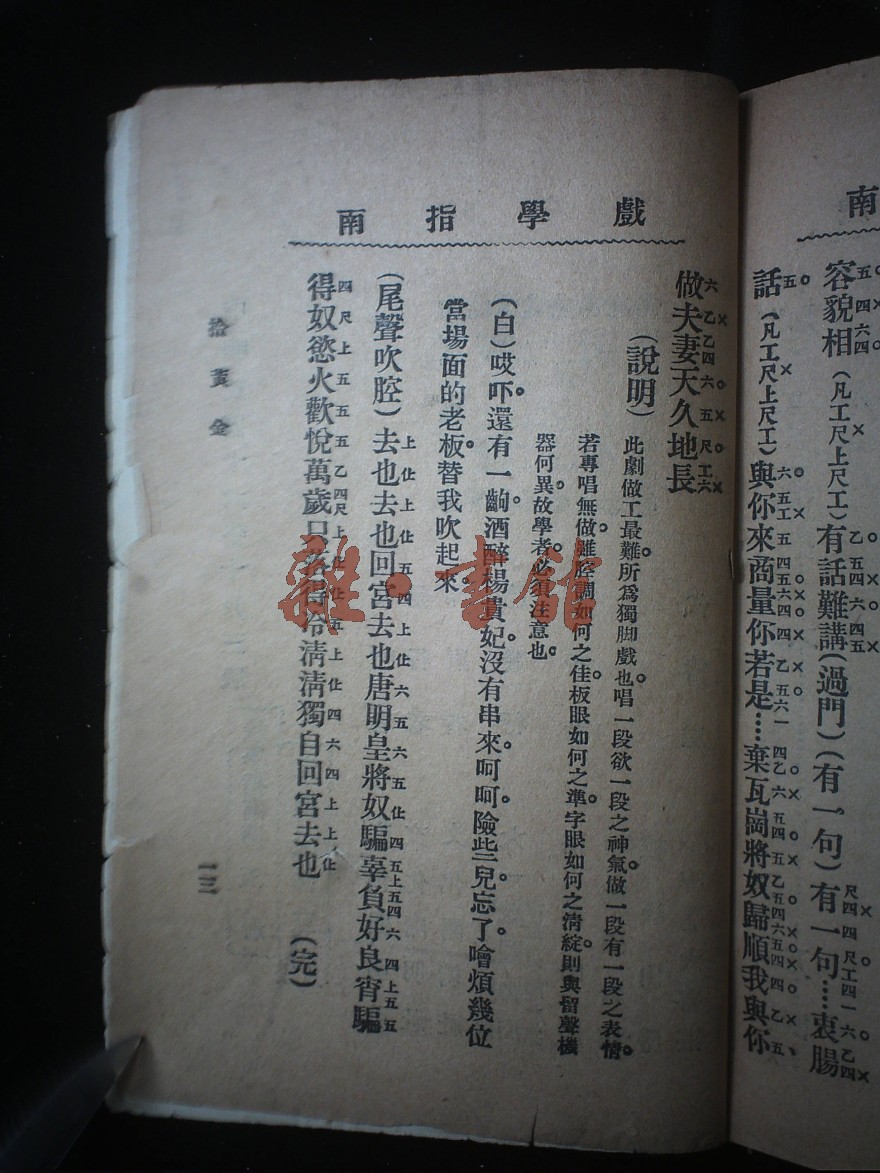 南
容貌相（凡工尺上尺工）有話難講（過門）（有一句）有一句……衷腸
話（凡工尺上尺工）與你來商量你若是……棄瓦崗將奴歸順我與你
戲學指南
做夫妻天久地長
（說明）此劇做工最難。所爲獨脚戲也。唱一段欲一段之神氣。做一段有一段之表情。
若專唱無做。雖腔調如何之佳。板眼如何之準。字眼如何之淸綻。則與留聲機
器何異。故學者必須注意也。
（白）哎吓。還有一齣酒醉楊貴妃。沒有串來。呵呵。險些兒忘了。噲煩幾位
當場面的老板。替我吹起來。
（尾聲吹腔）去也去也回宮去也唐明皇將奴騙辜負好良宵騙
得奴慾火歡悅萬歲只落得冷淸淸獨自回宮去也　（完）
拾黃金
一三
雜·書館